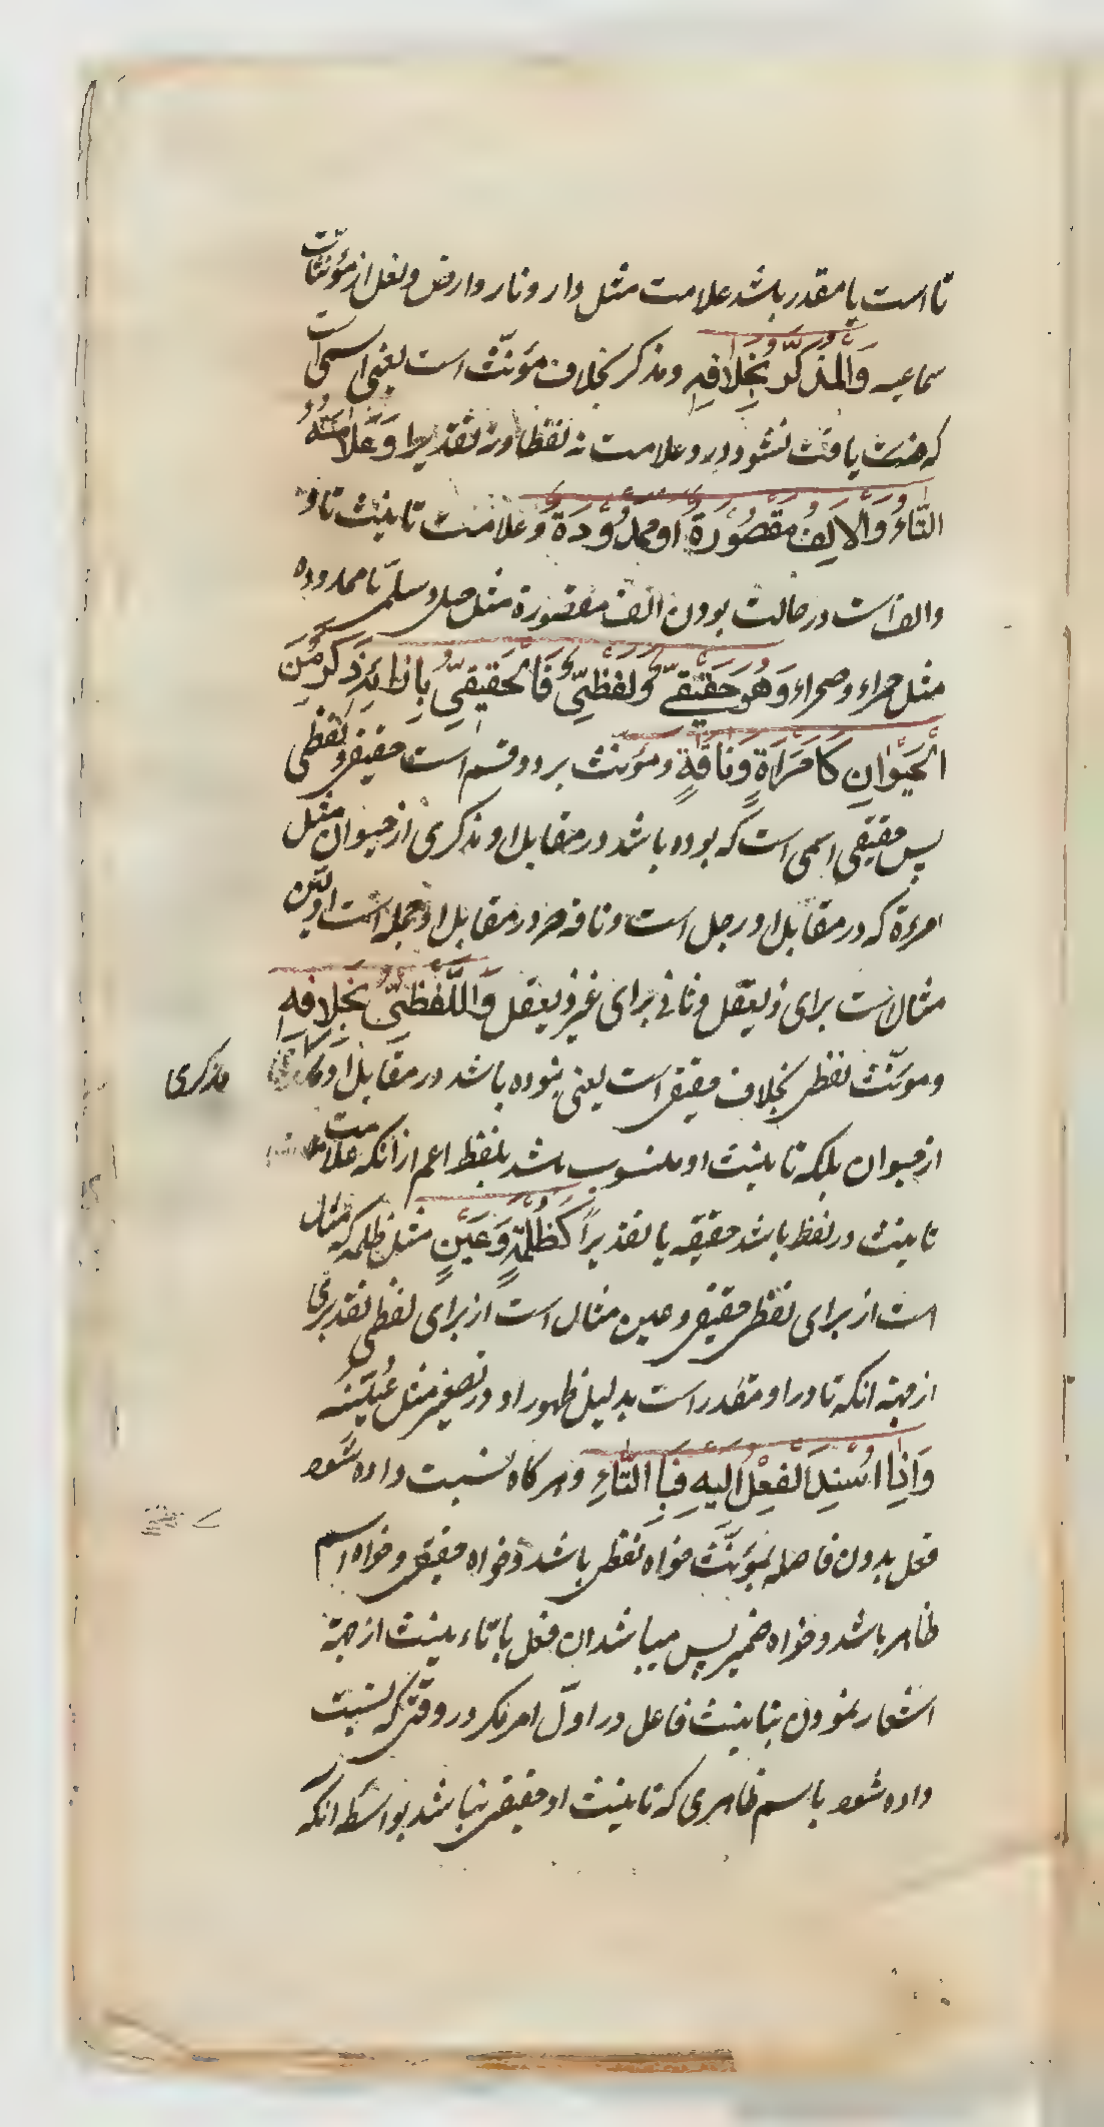 تا است یا مقدر باشد علامت مثل دار و نار و ارض و نعل از مؤنثات
سماعیه وَالْمُذَكَّرُ بِخِلَافِهِ و مذکر بخلاف مؤنّث است یعنی اسمی است
که یافت نشود در و علامت نه لفظا و نه تقدیرا وَعَلَامَتُهُ
التَّاءُ وَالْاَلِفُ مَقْصُورَةً اَو مَمْدُودَةً و علامت تانیث تا و
والف است در حالت بودن الف مقصورة مثل حبلی و سلمی یا ممدوده
مثل حمراء و صحراء وَهُوَ حَقِیقِیٌّ وَلَفْظِیٌّ فَالْحَقِیقِیُّ بِاِزَائِهِ ذَكَرٌ مِنَ
الْحَیَوَانِ كَامْرَاَةٍ وَنَاقَةٍ و مؤنث بر دو قسم است حقیقی و لفظی
پس حقیقی اسمی است که بوده باشد در مقابل او مذکری از حیوان مثل
امرءة که در مقابل او رجل است و ناقه که در مقابل او جمل است اولین
مثال است برای ذیعقل و ثانی برای غیر ذیعقل وَاللَّفْظِیُّ بِخِلَافِهِ
و مونّث لفظی بخلاف حقیقی است یعنی نبوده باشد در مقابل او
مذکری
از حیوان بلکه تانیث او منسوب باشد بلفظ اعم از انکه علامت
تانیث در لفظ باشد حقیقة یا تقدیراً كَظُلْمَةٍ وَعَیْنٍ مثل ظلمه که مثال
است از برای لفظی حقیقی و عین مثال است از برای لفظی تقدیری
از جهة انکه تا در او مقدر است بدلیل ظهور او در تصغیر مثل عُیَیْنَة
وَاِذَا اُسْنِدَ الْفِعْلُ اِلَیهِ فَبِالتَّاءِ و هر کاه نسبت داده شود
فعل بدون فاصله بمؤنّث خواه لفظی باشد و خواه حقیقی و خواه اسم
ظاهر باشد و خواه ضمیر پس میباشد ان فعل با تاء تانیث از جهة
اشعار نمودن بتانیث فاعل در اول امر مکر در وقتی که نسبت
داده شود باسم ظاهری که تانیث او حقیقی نباشد بواسطه انکه